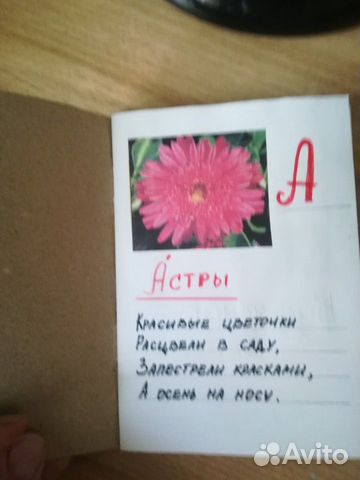 А
Астры
Красивые цветочки
Расцвели в саду,
Запестрели красками,
А осень на носу.
Avito